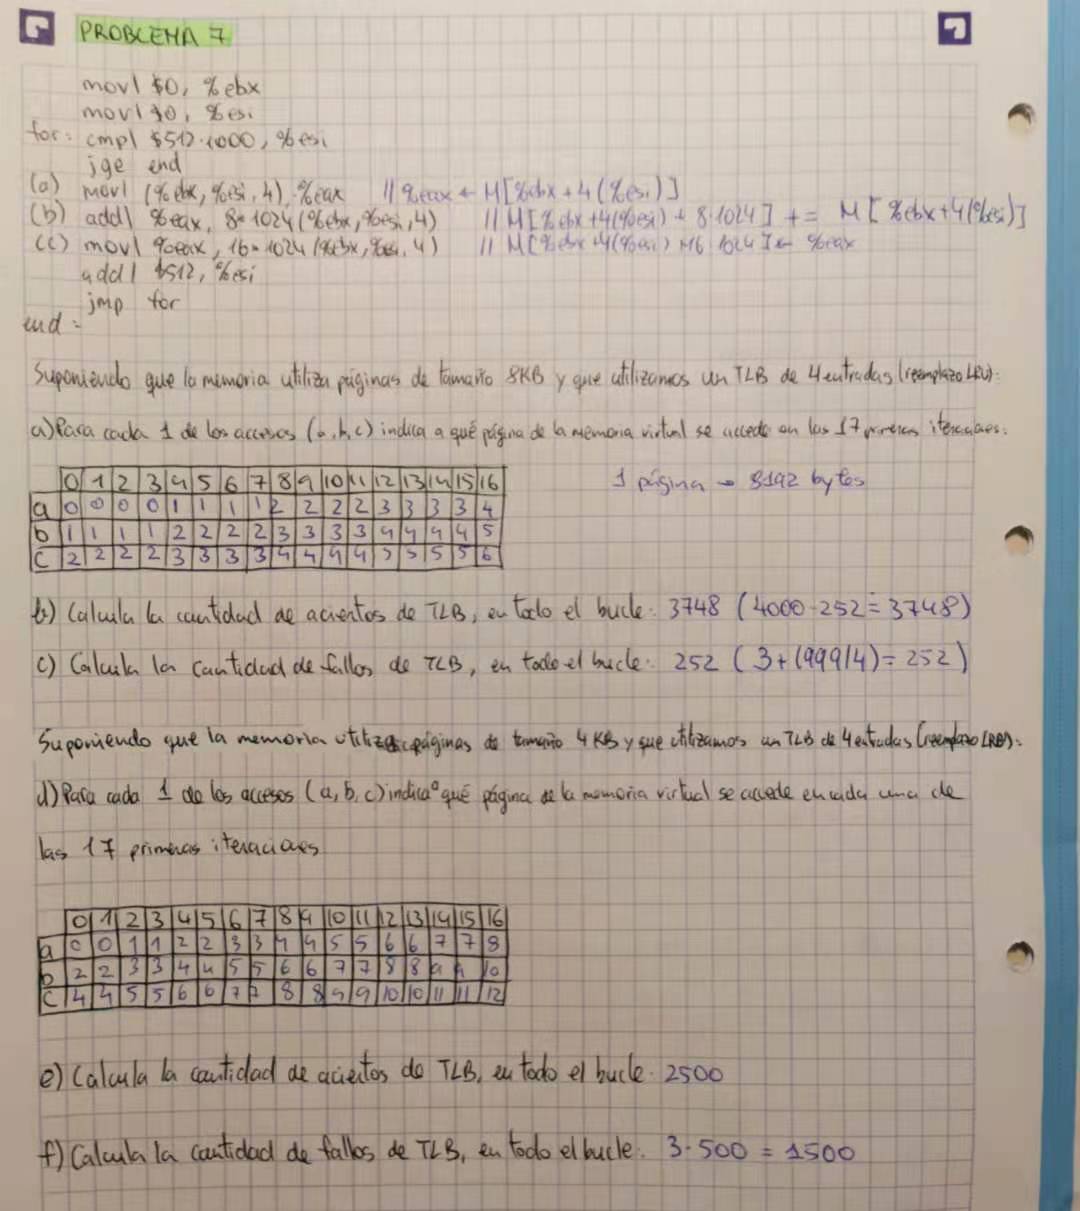 PROBLEMA 7
movl $0, %ebx
movl $0, %esi
for: cmpl $512·1000, %esi
jge end
(a) movl (%ebx, %esi, 4), %eax // %eax ← M[%ebx + 4(%esi)]
(b) addl %eax, 8*1024(%ebx, %esi, 4) // M[%ebx+4(%esi) + 8·1024] += M[%ebx+4(%esi)]
(c) movl %eax, 16*1024(%ebx, %esi, 4) // M[%ebx+4(%esi)+16·1024] ← %eax
addl $512, %esi
jmp for
end:
Suponiendo que la memoria utiliza páginas de tamaño 8KB y que utilizamos un TLB de 4 entradas (reemplazo LRU):
a) Para cada 1 de los accesos (a, b, c) indica a qué página de la memoria virtual se accede en las 17 primeras iteraciones.
0 1 2 3 4 5 6 7 8 9 10 11 12 13 14 15 16 1 página → 8192 bytes
a 0 0 0 0 1 1 1 1 2 2 2 2 3 3 3 3 4
b 1 1 1 1 2 2 2 2 3 3 3 3 4 4 4 4 5
c 2 2 2 2 3 3 3 3 4 4 4 4 5 5 5 5 6
b) Calcula la cantidad de aciertos de TLB, en todo el bucle: 3748 (4000-252=3748)
c) Calcula la cantidad de fallos de TLB, en todo el bucle: 252 (3+(999/4)=252)
Suponiendo que la memoria utiliza páginas de tamaño 4KB y que utilizamos un TLB de 4 entradas (reemplazo LRU):
d) Para cada 1 de los accesos (a, b, c) indica a qué página de la memoria virtual se accede en cada una de
las 17 primeras iteraciones
0 1 2 3 4 5 6 7 8 9 10 11 12 13 14 15 16
a 0 0 1 1 2 2 3 3 4 4 5 5 6 6 7 7 8
b 2 2 3 3 4 4 5 5 6 6 7 7 8 8 9 9 10
c 4 4 5 5 6 6 7 7 8 8 9 9 10 10 11 11 12
e) Calcula la cantidad de aciertos de TLB, en todo el bucle. 2500
f) Calcula la cantidad de fallos de TLB, en todo el bucle. 3·500 = 1500